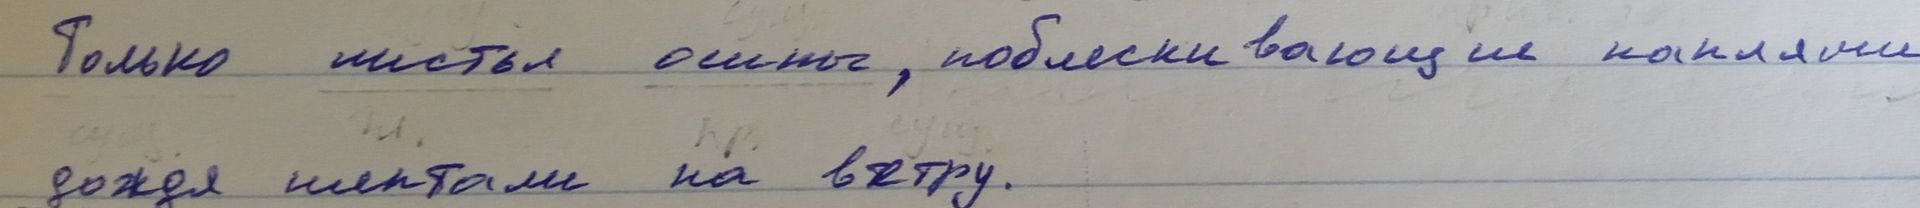 Только листья осины, поблескивающие каплями
сущ. гл. пр. сущ.
дождя шептали на ветру.